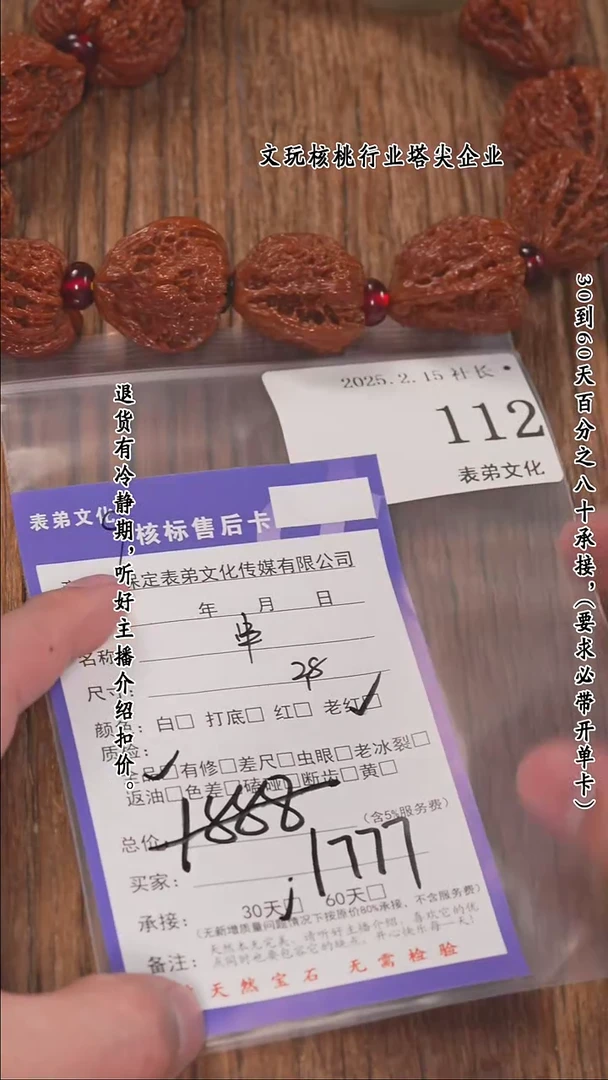 文玩核桃行业塔尖企业
30到60天百分之八十承接，(要求必带开单卡)
退货有冷静期，听好主播介绍扣价。
2025.2.15 社长
112
表弟文化
表弟文化
核标售后卡
保定表弟文化传媒有限公司
年 月 日
名称 串
尺寸: 28
颜色: 白□ 打底□ 红□ 老红□
质检:
□有修□差尺□虫眼□老冰裂□
返油□色差□磕碰□断齿□黄□
总价 1888 (含5%服务费)
1777
买家:
承接: 30天□ 60天□
(无新增质量问题情况下按原价80%承接,不含服务费)
备注: 天然本无完美,请听好主播介绍,喜欢它的优
点同时也要包容它的缺点,开心快乐每一天!
天然宝石 无需检验